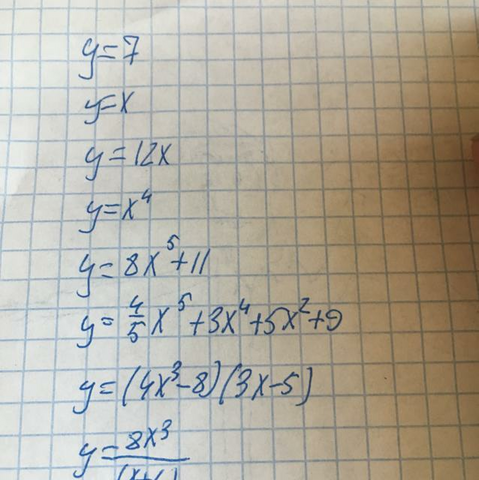 y=7
y=x
y=12x
y=x⁴
y=8x⁵+11
y=4/5x⁵+3x⁴+5x²+9
y=(4x³-8)(3x-5)
y=8x³/